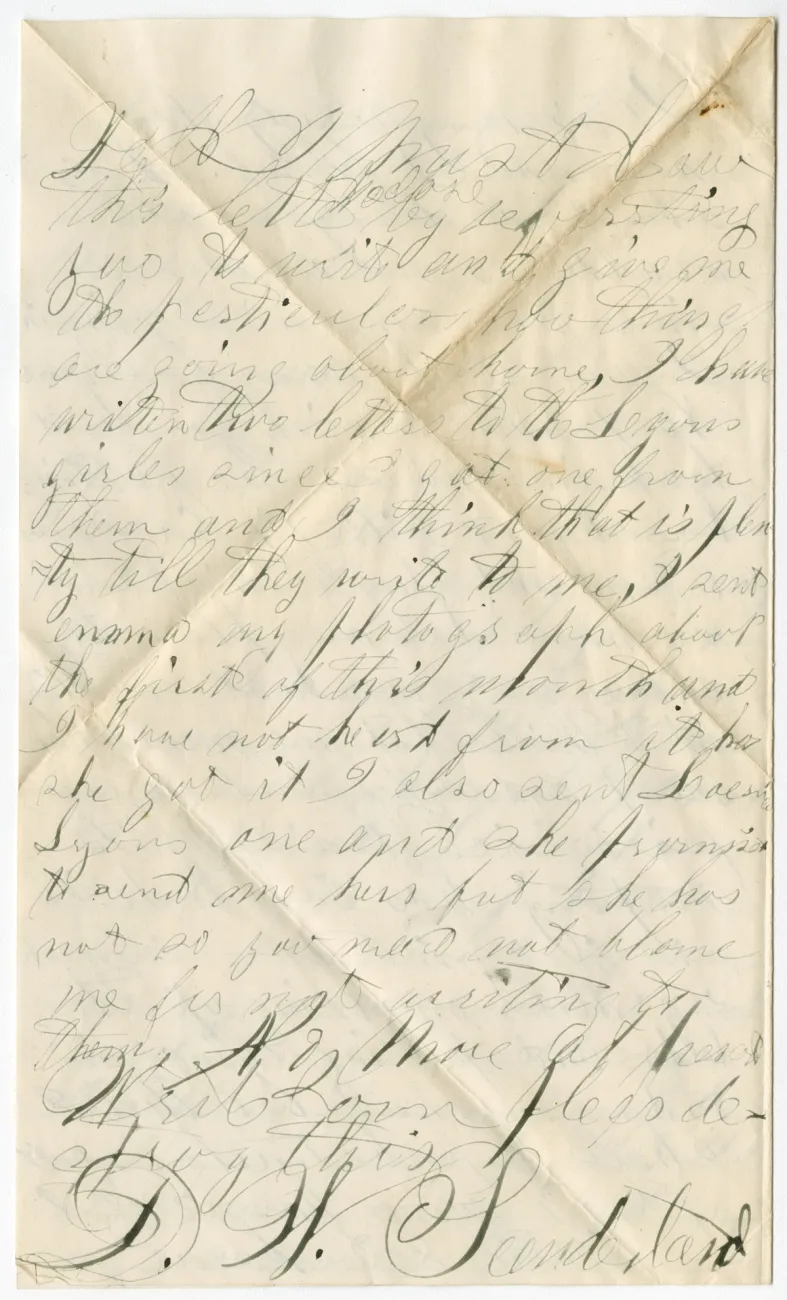 Well I Must draw
this letter to a close by requesting
you to writ and give me
the perticulars how things
are going about home, I have
writen two letters to the Lyons
girles since I got one from
them and I think that is plen
ty till they write to me, I sent
emma my photograph about
the first of this month and
I have not heard from it
she got it I also sent
Lyons one and she promised
to send me hers but she has
not so you need not blame
me for not writing to
them, No More at present
Write soon pleas de-
stroy this
D. H. Sunderland